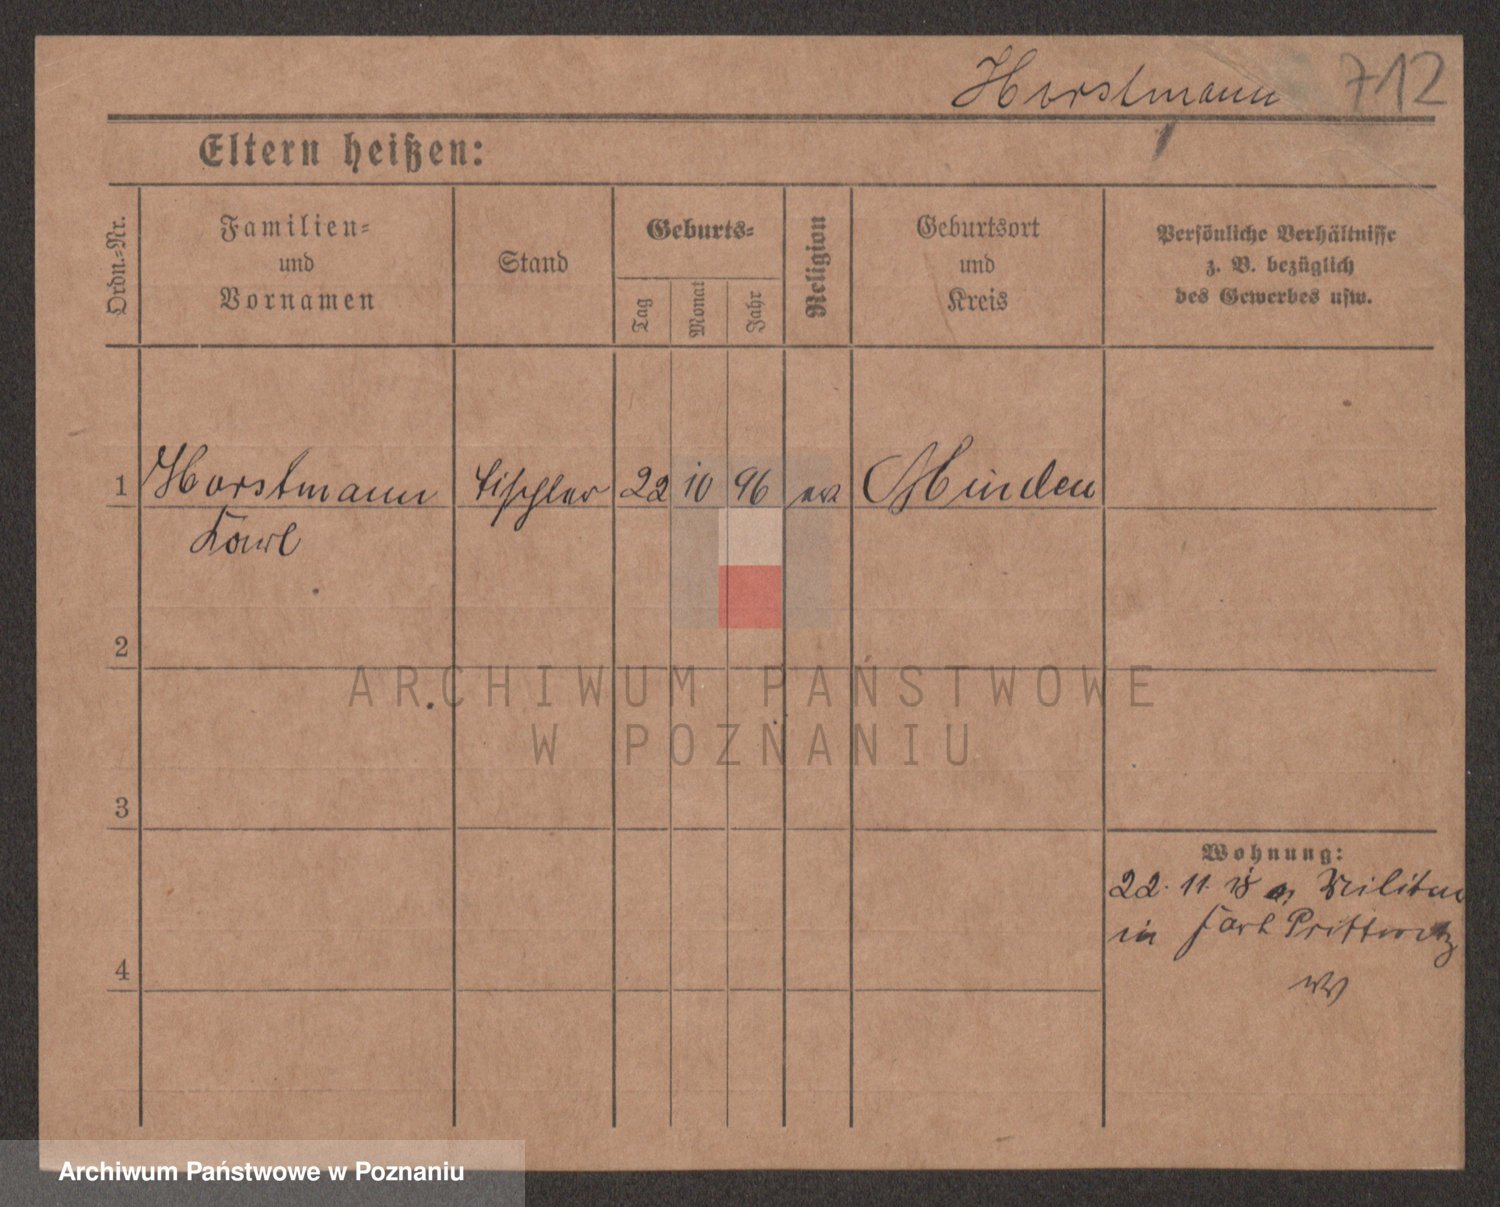 Horstmann 712
Eltern heißen:
Ordn.-Nr.
Familien-
und
Vornamen
Stand
Geburts-
Tag
Monat
Jahr
Religion
Geburtsort
und
Kreis
Persönliche Verhältnisse
z. B. bezüglich
des Gewerbes usw.
1 Horstmann Tischler 22 10 96 ev Minden
Karl
2
ARCHIWUM PAŃSTWOWE
W POZNANIU
3
Wohnung:
22. 11. 18 Militär
in Fort Prittwitz
4
Archiwum Państwowe w Poznaniu